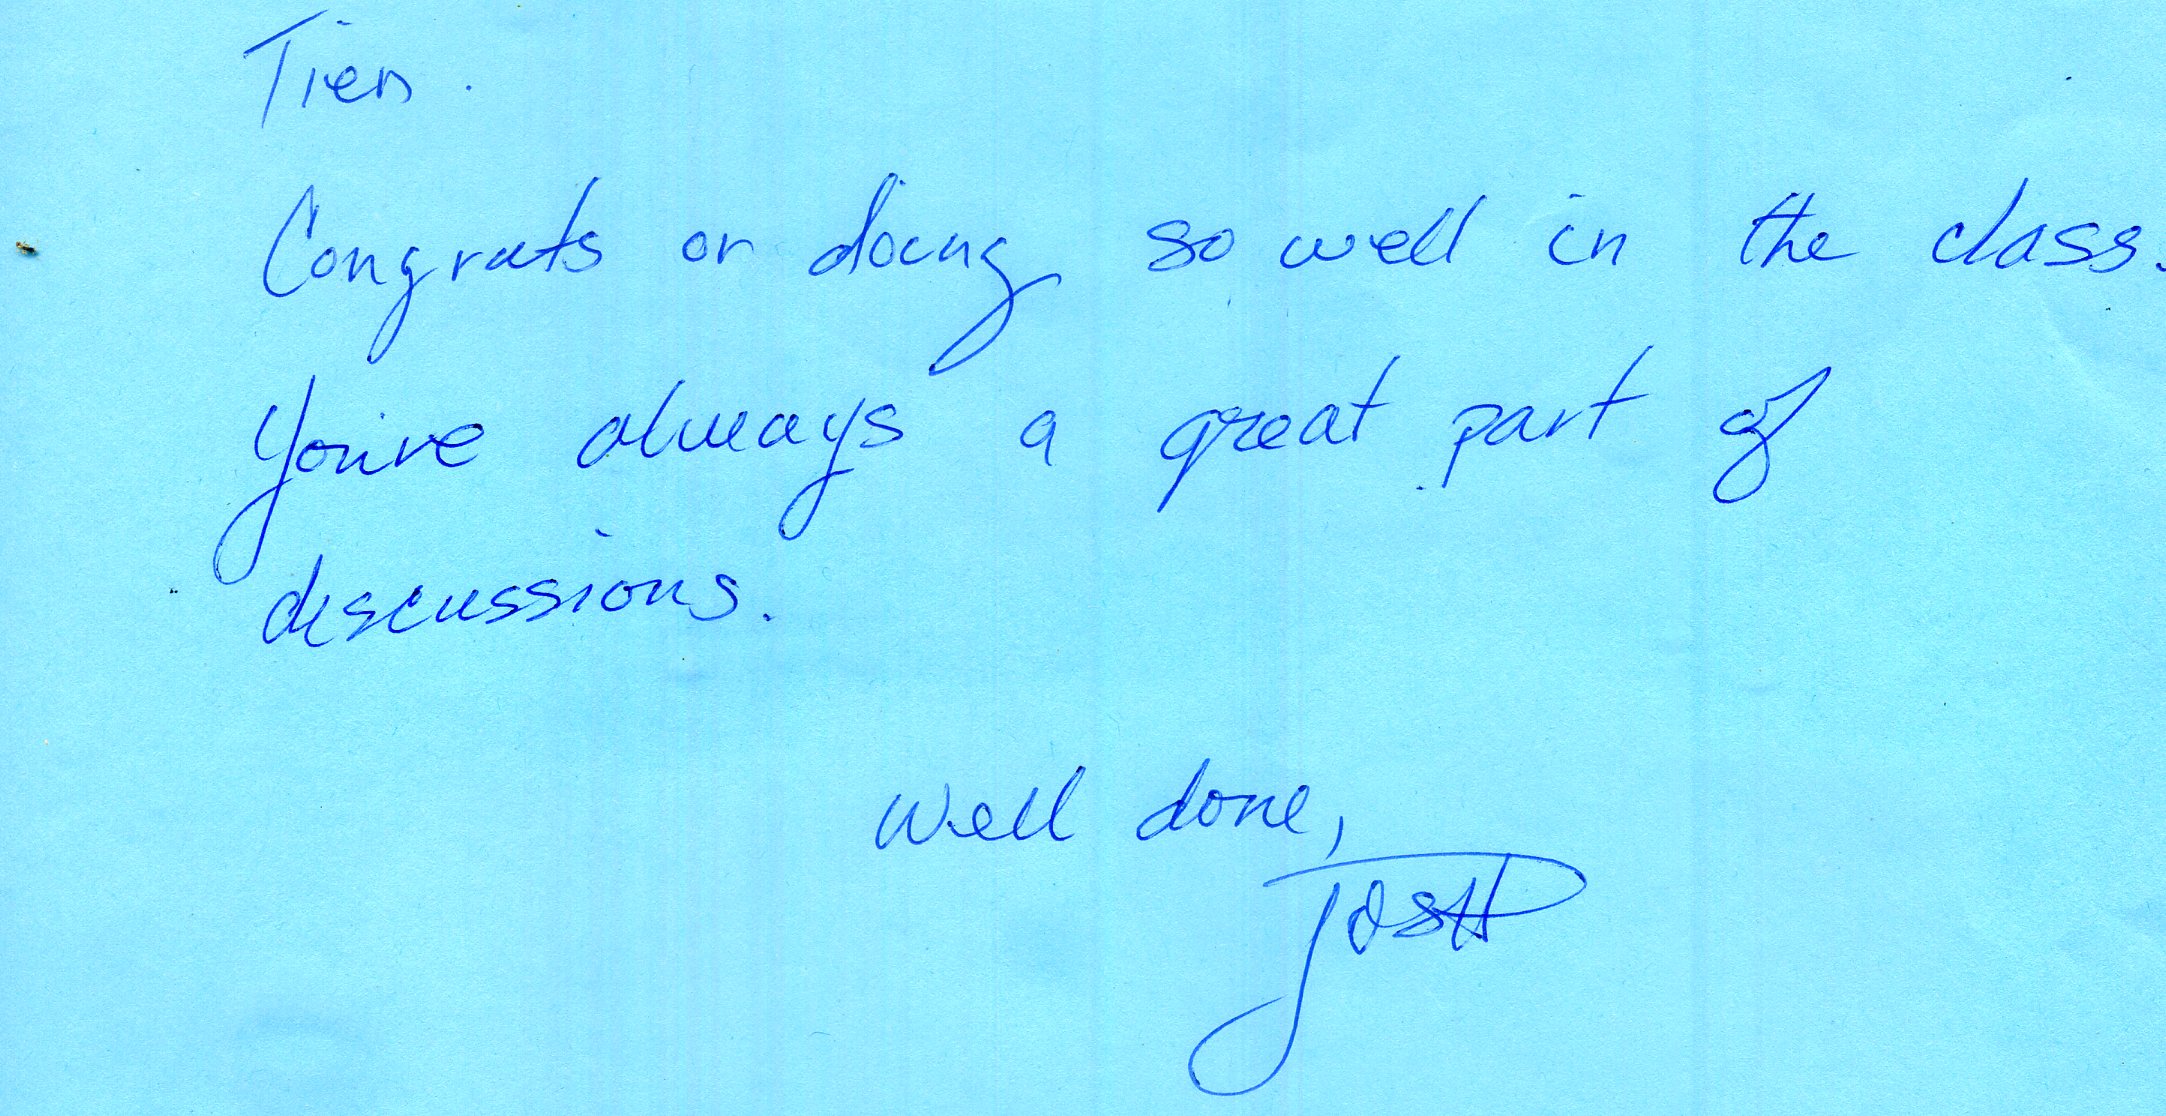 Tien.
Congrats on doing so well in the class.
You're always a great part of
discussions.
Well done,
JOSH